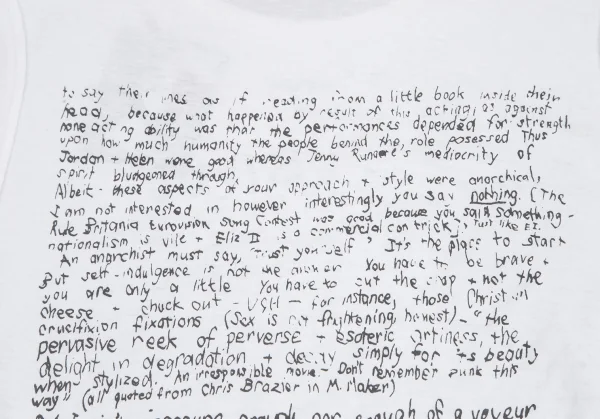 to say their lines as if reading from a little book inside their
head, because what happened by result of this acting, as against
none acting ability was that the performances depended for strength
upon how much humanity the people behind the, role posessed Thus
Jordan + Helen were good whereas Jenny Runacre's mediocrity of
spirit bludgeoned through,
Albeit - these aspects of your approach + style were anarchical,
I am not interested in however interestingly you say nothing. (The
Rule Britania Eurovision Song Contest was good because you said something -
nationalism is vile + Eliz II is a commercial con trick, just like E2.
An anarchist must say, Trust yourself' It's the place to start
But self-indulgence is not the answer You have to be brave +
you are only a little You have to cut the crap + not the
cheese - chuck out - UGH - for instance, those Christ
crucifixion fixations (Sex is not frightening, honest) - "the
pervasive reek of perverse + esoteric artiness, the
delight in degradation + decay simply for its beauty
when stylized. An irresponsible movie. Don't remember punk this
way" (all quoted from Chris Brazier in M. Maker)
enough of a voyeur